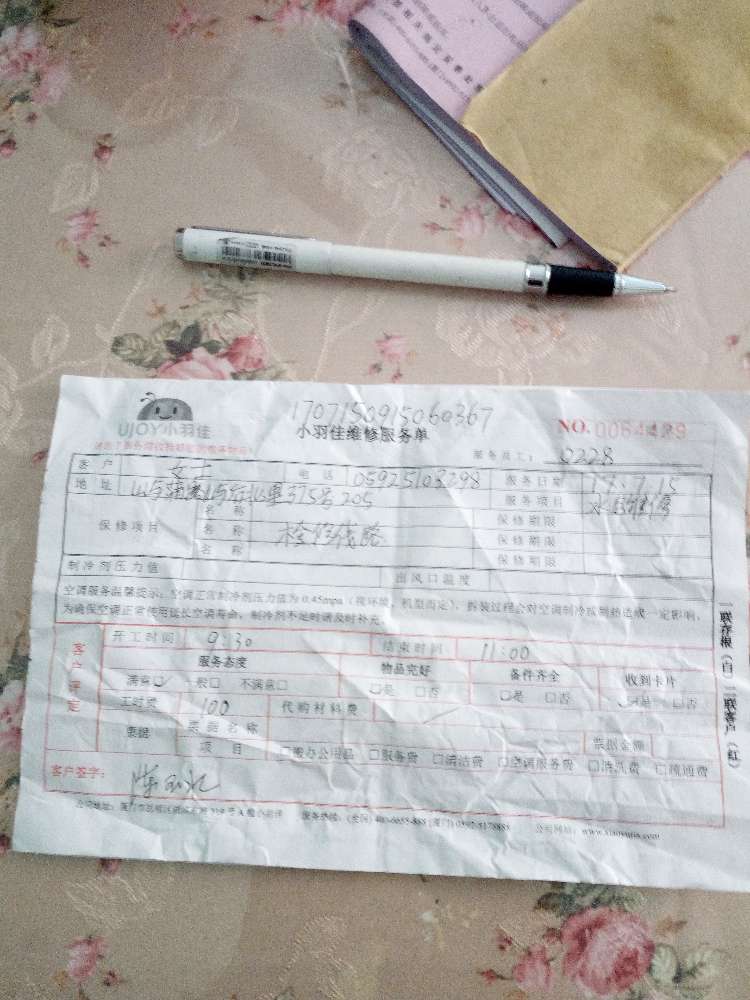 1707150915060367
UJOY小羽佳
小羽佳维修服务单
NO.
服务员工： 0228
客户 女士 电话 05925103298 服务日期 17.7.15
地址 375号205 服务项目 水电维修
保修项目 名称 保修期限
名称 检修线路 保修期限
名称 保修期限
制冷剂压力值 出风口温度
空调服务温馨提示：空调正常制冷剂压力值为0.45mpa（视环境、机型而定），拆装过程会对空调制冷系统造成一定影响，
为确保空调正常使用延长空调寿命，制冷剂不足时请及时补充。
客户评定
开工时间 9:30 结束时间 11:00
服务态度 物品完好 备件齐全 收到卡片
满意☑ 一般□ 不满意□ □是 □否 □是 □否 □是 □否
工时费 100 代购材料费
票据 票据名称 票据金额
项目 □搬办公用品 □服务费 □清洁费 □空调服务费 □洗儿费 □疏通费
客户签字：
公司地址： 服务热线：(全国) 400-6655-888 (厦门) 0592-5178885 公司网站：www.xiaoyujia.com
一联存根（白）二联客户（红）